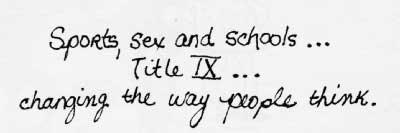 Sports, sex and schools ...
Title IX ...
changing the way people think.